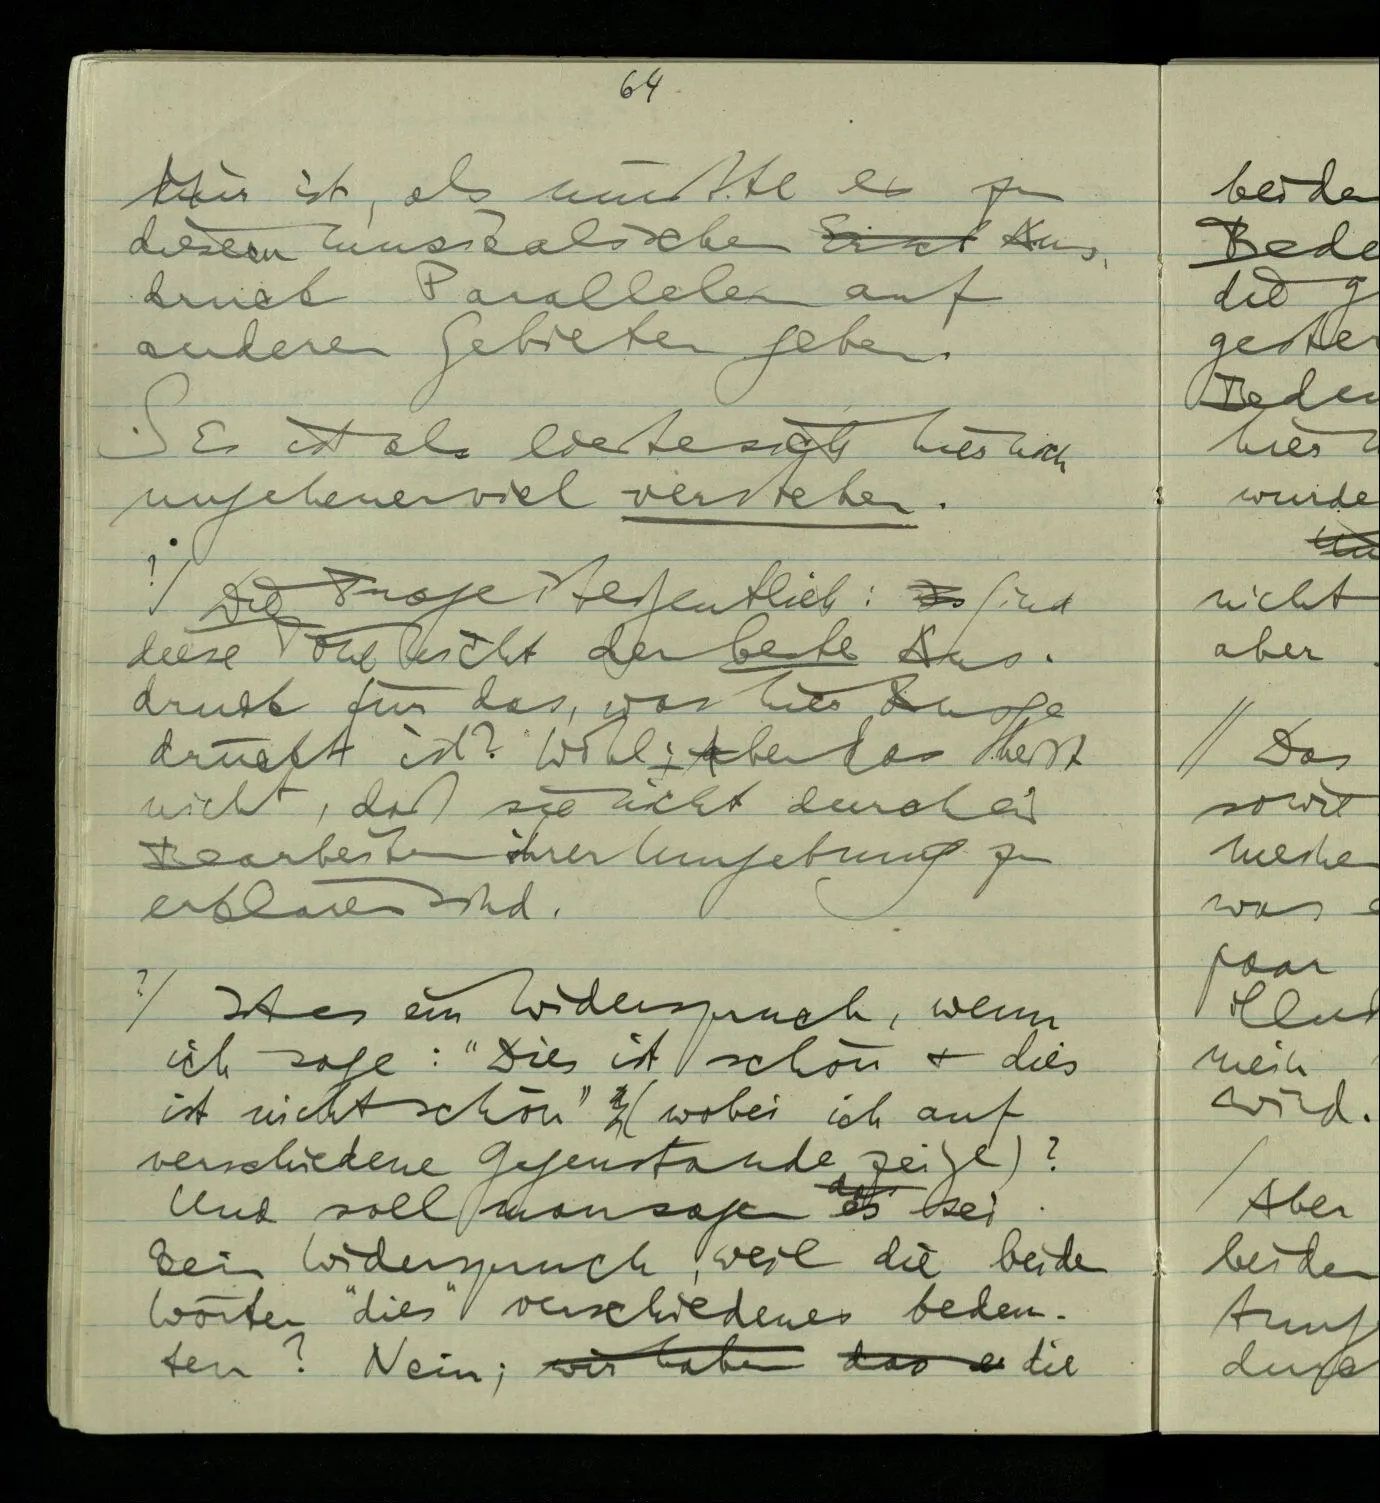 64
Mir ist, als müßte es zu
diesem musikalischen Aus-
druck Parallelen auf
anderen Gebieten geben.
S Es ist als ließe sich hier noch
ungeheuer viel verstehen.
?/ Die Frage ist eigentlich: sind
diese Töne nicht der beste Aus-
druck für das, was hier ausge
drückt ist? Wohl; aber das heißt
nicht, daß sie nicht durch ein
Bearbeiten ihrer Umgebung zu
erklären sind.
?/ Ist es ein Widerspruch, wenn
ich sage: "Dies ist schön & dies
ist nicht schön" (wobei ich auf
verschiedene Gegenstände zeige)?
Und soll man sagen es sei
kein Widerspruch, weil die beiden
Wörter "dies" verschiedenes bedeu-
ten? Nein; wir haben das die
beiden
Bede
die g
gester
Bedeu
hier
wurde
nicht
aber
// Das
soweit
meine
was
paar
mein
wird.
/ Aber
beiden